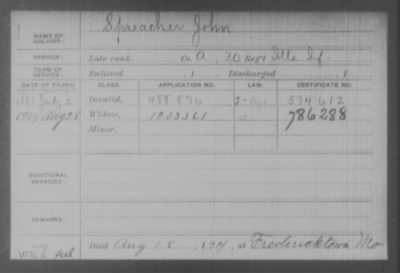 NAME OF SOLDIER: Spreacher John
SERVICE: Late rank, Co. A, 30 Reg't Ills Inf.
TERM OF SERVICE: Enlisted , 1 Discharged , 1
DATE OF FILING. CLASS. APPLICATION NO. LAW. CERTIFICATE NO.
July 2 Invalid, 488 876 574612
1914 Aug 28 Widow, 1033361 786288
Minor,
ADDITIONAL SERVICES:
REMARKS:
Died Aug 18, 1914, at Fredericktown Mo